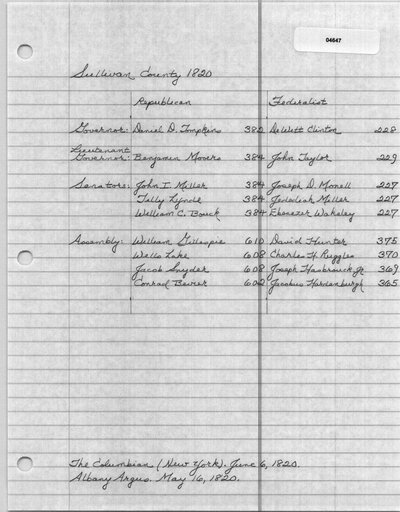 04647
Sullivan County 1820
Republican Federalist
Governor: Daniel D. Tompkins 382 DeWitt Clinton 228
Lieutenant
Governor: Benjamin Mooers 384 John Taylor 229
Senators: John I. Miller 384 Joseph D. Monell 227
Tilly Lynde 384 Jedediah Miller 227
William C. Bouck 384 Ebenezer Wakeley 227
Assembly: William Gillespie 610 David Hunter 375
Wells Lake 608 Charles H. Ruggles 370
Jacob Snyder 608 Joseph Hasbrouck Jr 369
Conrad Bevier 602 Jacobus Hardenburgh 365
The Columbian (New York). June 6, 1820.
Albany Argus. May 16, 1820.